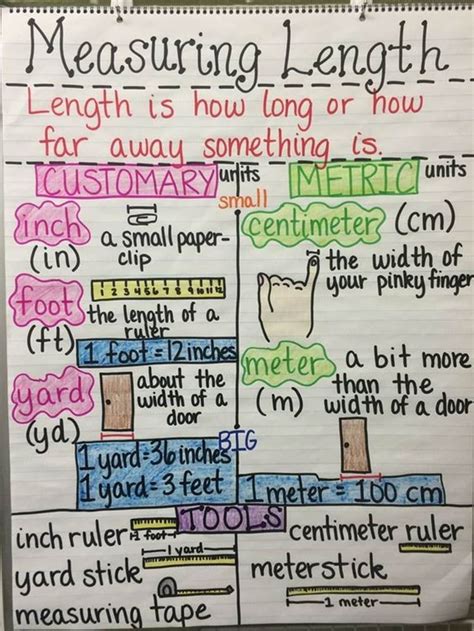 Measuring Length
Length is how long or how
far away something is.
CUSTOMARY units
small
inch
(in)
a small paper-
clip
foot
(ft)
1 2 3 4 5 6 7 8 9 10 11 12
the length of a
ruler
1 foot = 12 inches
yard
(yd)
about the
width of a
door
BIG
1 yard = 36 inches
1 yard = 3 feet
METRIC units
centimeter (cm)
the width of
your pinky finger
meter
(m)
a bit more
than the
width of a door
1 meter = 100 cm
TOOLS
inch ruler
1 foot
yard stick
1 yard
measuring tape
centimeter ruler
meterstick
1 meter